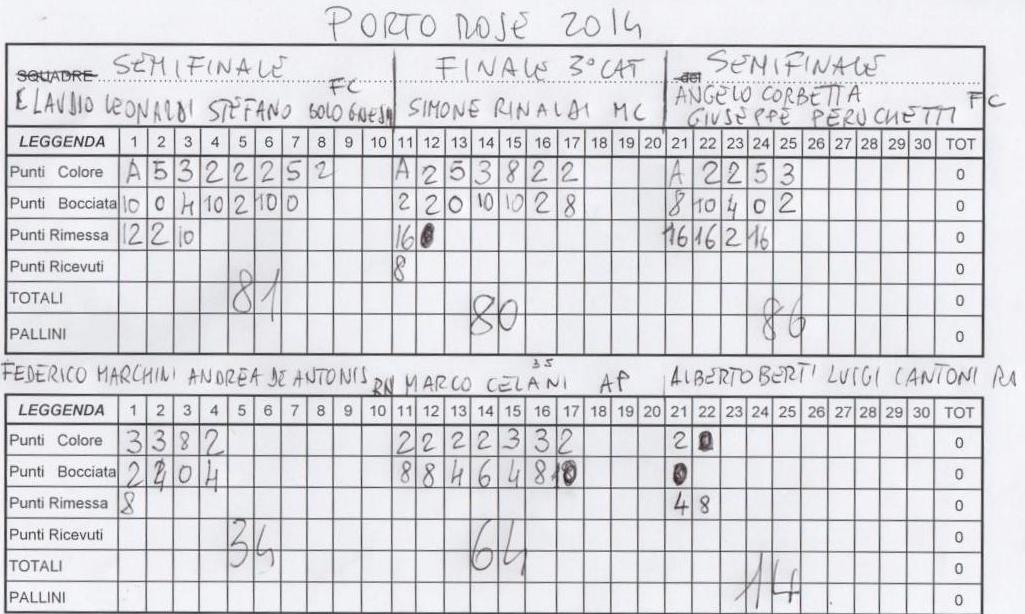 PORTO ROSE 2014
SQUADRE SEMIFINALE FINALE 3° CAT del SEMIFINALE
CLAUDIO LEONARDI STEFANO FC SIMONE RINALDI MC ANGELO CORBETTA FC
GIUSEPPE PERUCHETTI
LEGGENDA 1 2 3 4 5 6 7 8 9 10 11 12 13 14 15 16 17 18 19 20 21 22 23 24 25 26 27 28 29 30 TOT
Punti Colore A 5 3 2 2 2 5 2 A 2 5 3 8 2 2 A 2 2 5 3 0
Punti Bocciata 10 0 4 10 2 10 0 2 2 0 10 10 2 8 8 10 4 0 2 0
Punti Rimessa 12 2 10 16 16 16 2 16 0
Punti Ricevuti 8 0
TOTALI 81 80 86 0
PALLINI 0
FEDERICO MARCHINI ANDREA DE ANTONIS RN MARCO CELANI 35 AP ALBERTO BERTI LUIGI CANTONI RA
LEGGENDA 1 2 3 4 5 6 7 8 9 10 11 12 13 14 15 16 17 18 19 20 21 22 23 24 25 26 27 28 29 30 TOT
Punti Colore 3 3 8 2 2 2 2 2 3 3 2 2 0
Punti Bocciata 2 4 0 4 8 8 4 6 4 8 0
Punti Rimessa 8 4 8 0
Punti Ricevuti 34 64 0
TOTALI 14 0
PALLINI 0